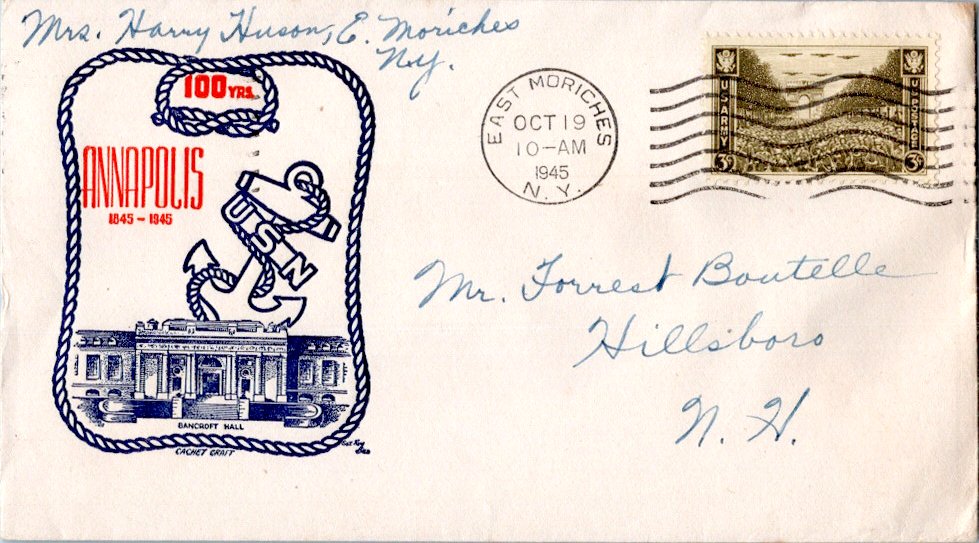 Mrs. Harry Huson, E. Moriches
N.y.
100 YRS.
ANNAPOLIS
1845 - 1945
USN
BANCROFT HALL
CACHET CRAFT
EAST MORICHES
OCT 19
10-AM
1945
N.Y.
U.S. ARMY
U.S. POSTAGE
3¢
3¢
Mr. Forrest Boutelle
Hillsboro
N. H.